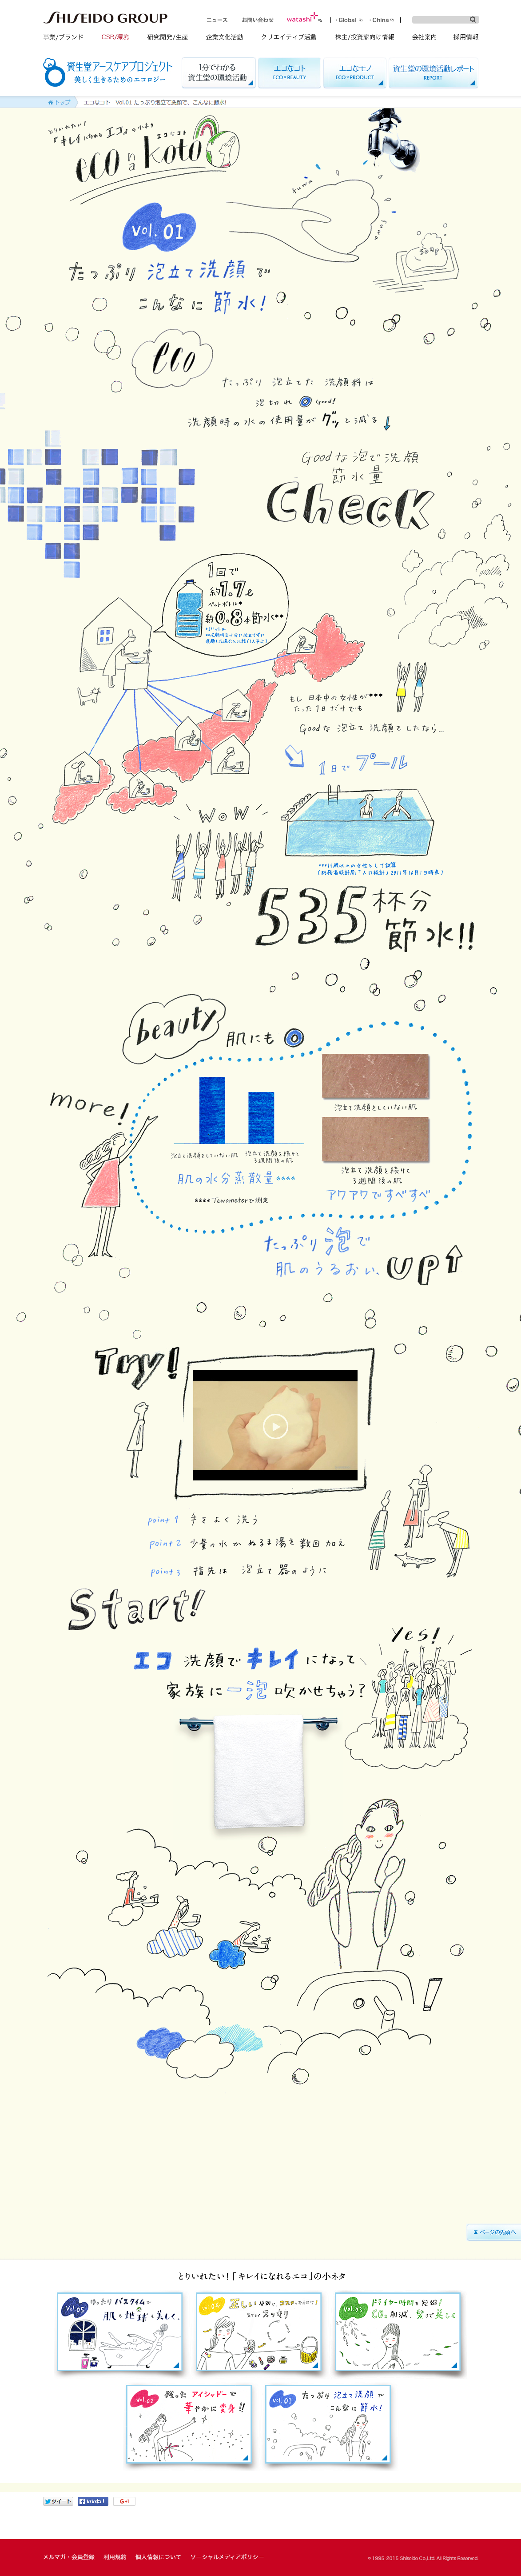 SHISEIDO GROUP
ニュース
お問い合わせ
watashi+
Global
China
事業/ブランド
CSR/環境
研究開発/生産
企業文化活動
クリエイティブ活動
株主/投資家向け情報
会社案内
採用情報
資生堂アースケアプロジェクト
美しく生きるためのエコロジー
1分でわかる
資生堂の環境活動
エコなコト
ECO×BEAUTY
エコなモノ
ECO×PRODUCT
資生堂の環境活動レポート
REPORT
トップ
エコなコト Vol.01 たっぷり泡立て洗顔で、こんなに節水!
とりいれたい!
『キレイになれるエコ』の小ネタ
エコなコト
eco na koto
Vol.01
soap
たっぷり 泡立て洗顔で
こんなに 節水!
eco
たっぷり 泡立てた 洗顔料は
泡切れ ◎ Good!
洗顔時の水の使用量が グッと減る
Goodな泡で洗顔
節水量
Check
1回で
約1.7ℓ
ペットボトル*
約0.8本節水**
もし 日本中の女性が***
たった1回だけでも
Goodな 泡立て 洗顔をしたなら...
1日で プール
WoW
***15歳以上の女性として試算
(総務省統計局「人口統計」2011年10月1日時点)
535杯分
節水!!
beauty
肌にも ◎
more!
泡立て洗顔をしていない肌
泡立て洗顔を続けて
3週間後の肌
肌の水分蒸散量****
****Tewameterで測定
泡立て洗顔をしていない肌
泡立て洗顔を続けて
3週間後の肌
アワアワですべすべ
たっぷり 泡で
肌のうるおい UP↑
Try!
point 1 手をよく洗う
point 2 少量の水かぬるま湯を数回加え
point 3 指先は 泡立て器のように
Start!
Yes!
エコ 洗顔でキレイになって
家族に一泡吹かせちゃう?
ページの先頭へ
とりいれたい!「キレイになれるエコ」の小ネタ
Vol.05
ゆったりバスタイムが
肌も地球も美しく。
Vol.03
ドライヤー時間を短縮!
CO2削減、髪まで美しく
Vol.02
残ったアイシャドーで
華やかに変身!!
Vol.01
たっぷり 泡立て洗顔で
こんなに 節水!
ツイート
いいね!
G+1
メルマガ・会員登録
利用規約
個人情報について
ソーシャルメディアポリシー
© 1995-2015 Shiseido Co.,Ltd. All Rights Reserved.